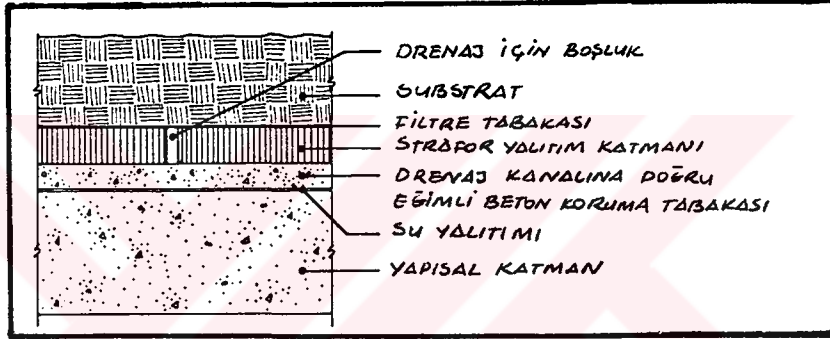 DRENAJ İÇİN BOŞLUK
SUBSTRAT
FİLTRE TABAKASI
STRAFOR YALITIM KATMANI
DRENAJ KANALINA DOĞRU
EĞİMLİ BETON KORUMA TABAKASI
SU YALITIMI
YAPISAL KATMAN